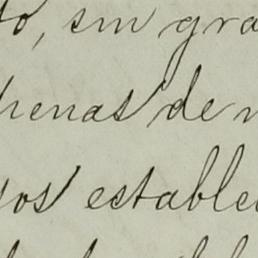 to, sin gra
henas de n
sos estable